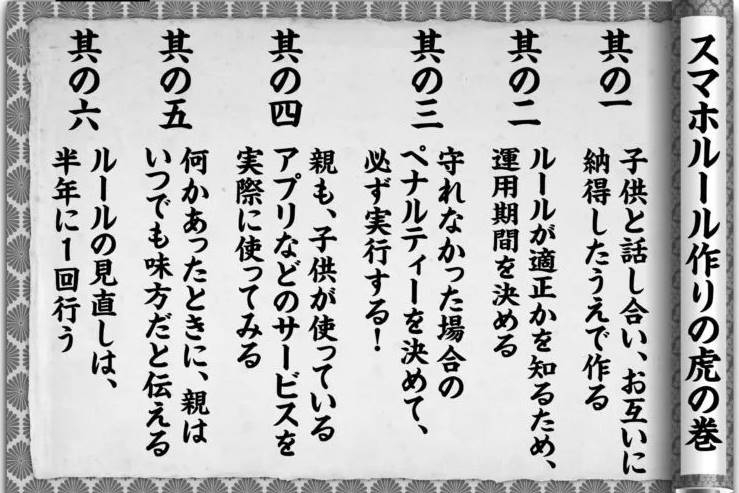 スマホルール作りの虎の巻
其の一
子供と話し合い、お互いに
納得したうえで作る
其の二
ルールが適正かを知るため、
運用期間を決める
其の三
守れなかった場合の
ペナルティーを決めて、
必ず実行する!
其の四
親も、子供が使っている
アプリなどのサービスを
実際に使ってみる
其の五
何かあったときに、親は
いつでも味方だと伝える
其の六
ルールの見直しは、
半年に1回行う